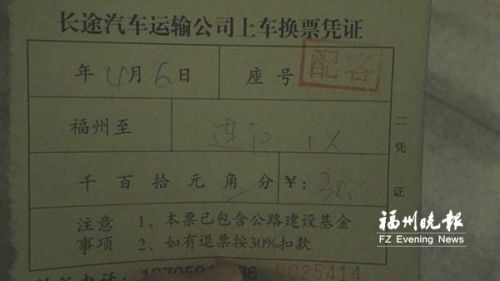 长途汽车运输公司上车换票凭证
年4月6日 座号 配客
福州至 连江 1人
二凭证
千百拾元角分 ¥:30.
注意事项 1、本票已包含公路建设基金
2、如有退票按30%扣款
0025414
福州晚報
FZ Evening News